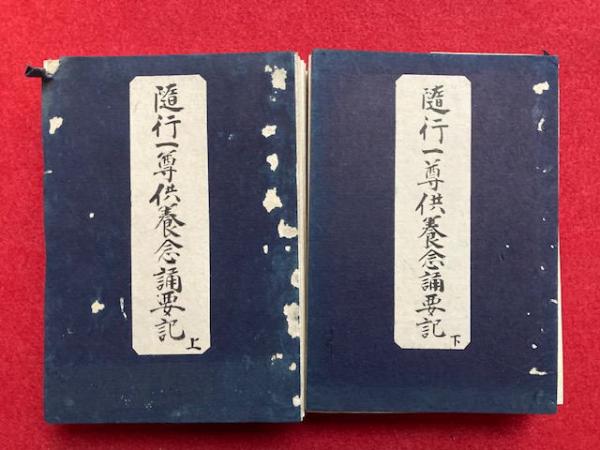 隨行一尊供養念誦要記上
隨行一尊供養念誦要記下